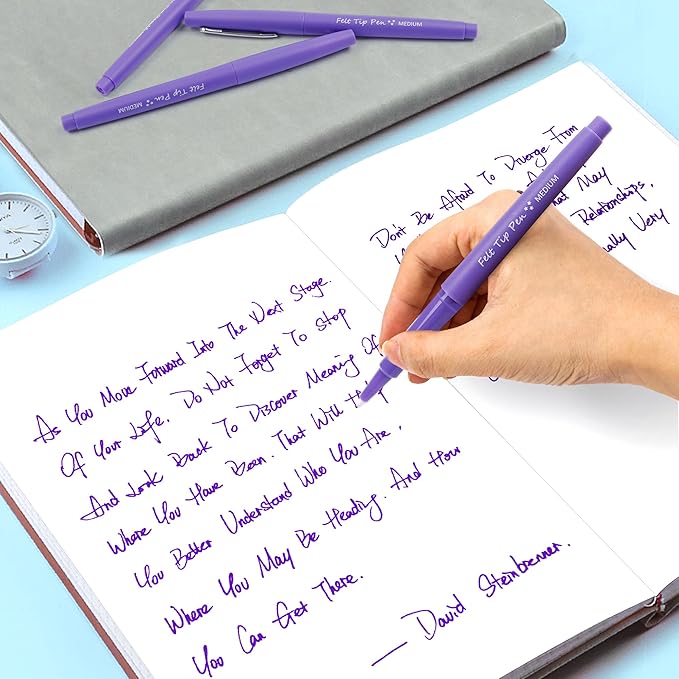 Felt Tip Pen MEDIUM
Felt Tip Pen MEDIUM
As You Move Forward Into The Next Stage.
Of Your Life. Do Not Forget To Stop
And Look Back To Discover Meaning Of
Where You Have Been. That Will
You Better Understand Who You Are,
Where You May Be Heading. And How
You Can Get There.
— David Steinbrenner.
Don't Be Afraid To Diverge From
May
Relationships,
Very
Felt Tip Pen MEDIUM